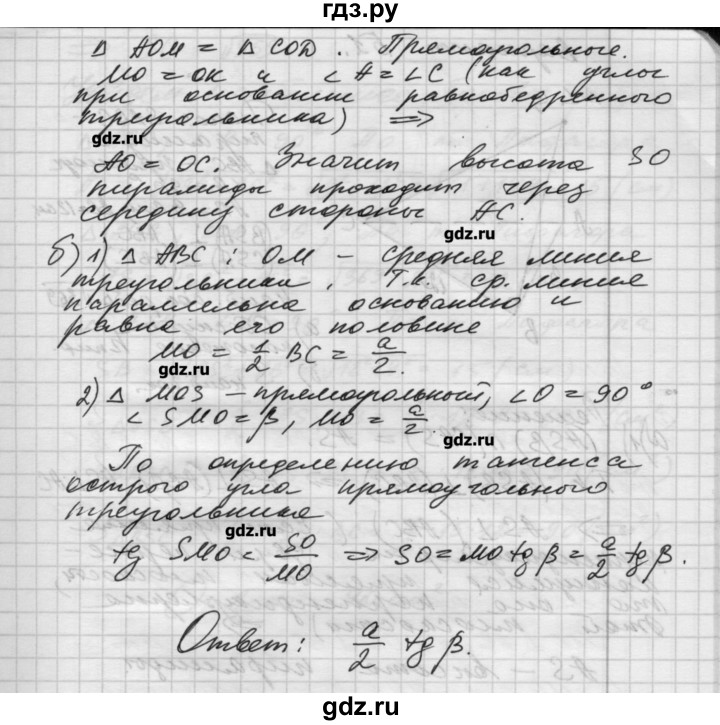 гдз.ру
Δ AOM = Δ COD. Прямоугольные.
MO = OK и ∠A = ∠C (как углы
при основании равнобедренного
треугольника) ⇒
gdz.ru
AO = OC. Значит высота SO
пирамиды проходит через
середину стороны AC.
gdz.ru
б) 1) Δ ABC: OM – средняя линия
треугольника. Т.к. ср. линия
параллельна основанию и
равна его половине
MO = 1/2 BC = a/2.
gdz.ru
2) Δ MOS – прямоугольный, ∠O = 90°
∠ SMO = β, MO = a/2.
gdz.ru
По определению тангенса
острого угла прямоугольного
треугольника
gdz.ru
tg SMO = SO/MO ⇒ SO = MO tg β = a/2 tg β.
Ответ: a/2 tg β.
gdz.ru